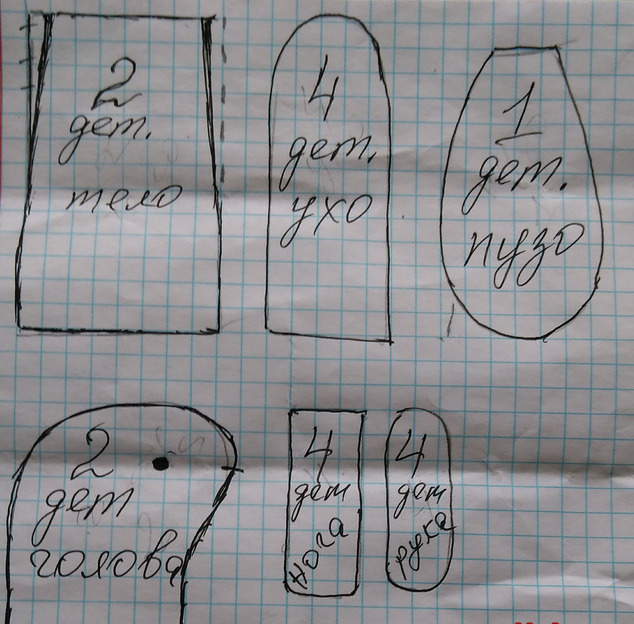 2
дет.
тело
4
дет.
ухо
1
дет.
пузо
2
дет
голова
4
дет
нога
4
дет
рука